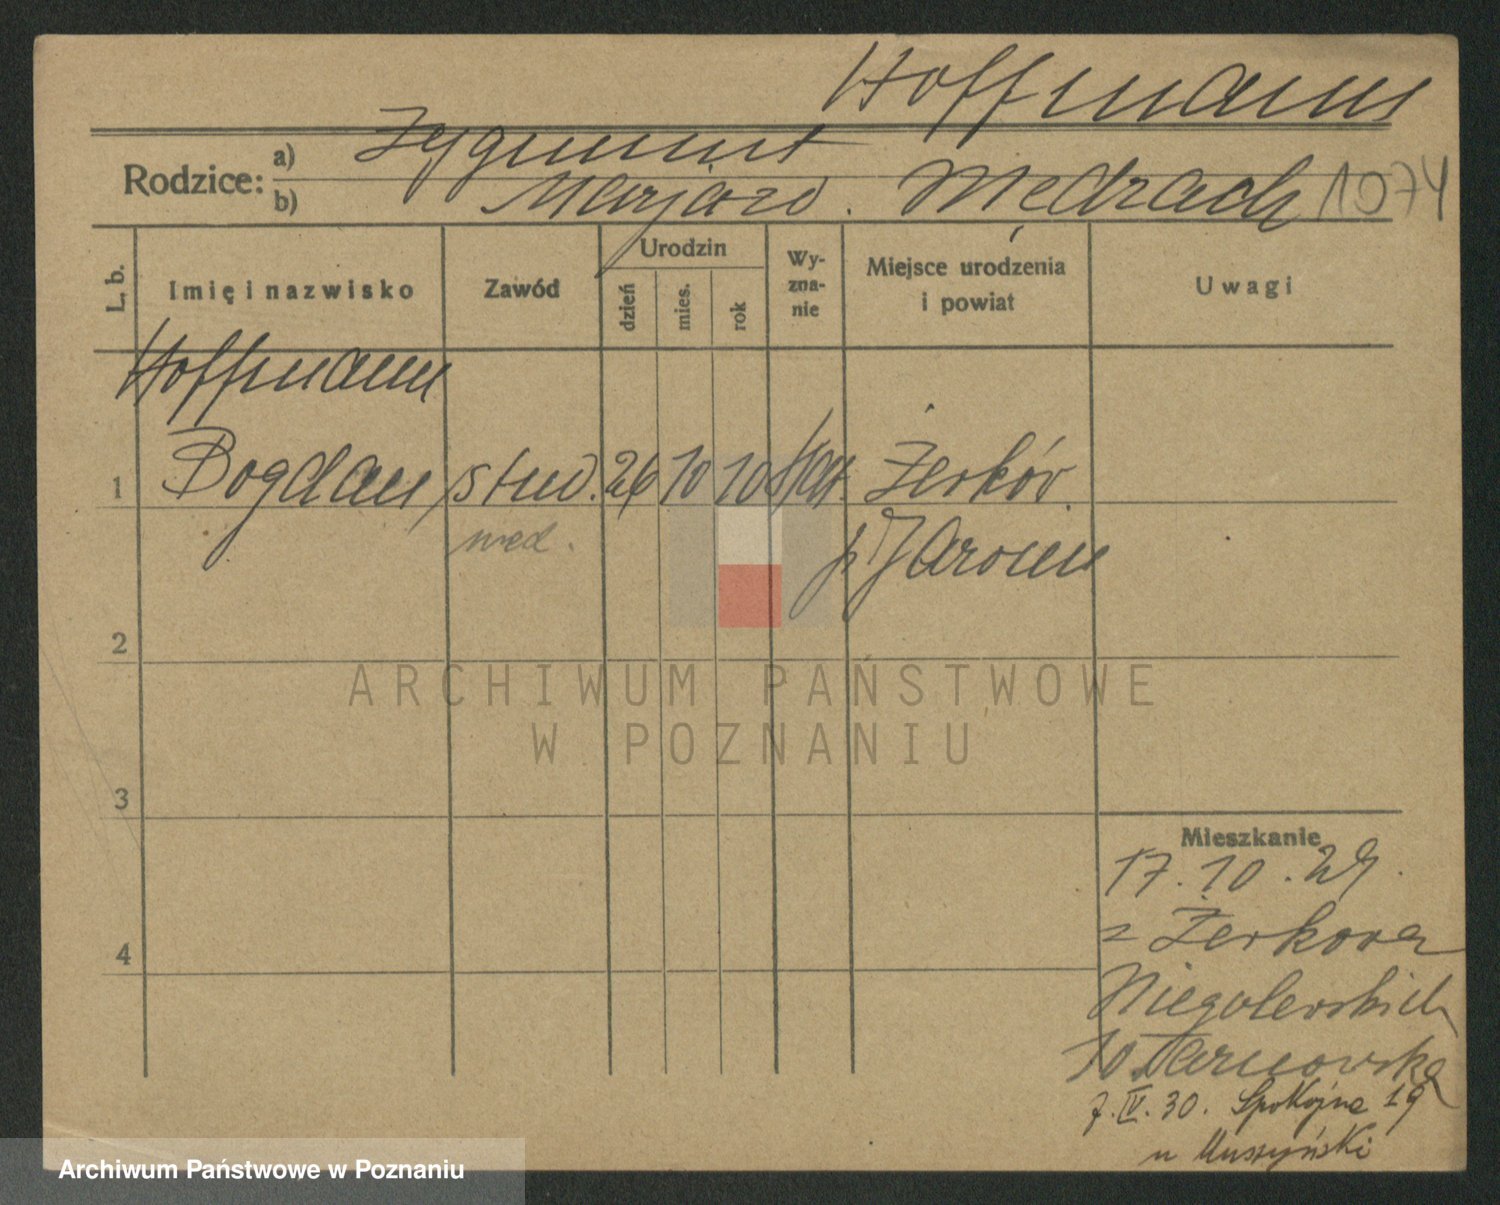 Hoffmann
Rodzice: a) Zygmunt
b) Marja zd. Mędrzach 1074
L. b. Imię i nazwisko Zawód Urodzin dzień mies. rok Wy-zna-nie Miejsce urodzenia i powiat Uwagi
Hoffmann
1 Bogdan stud. 26 10 10 kat. Żerków
med. p. Jarocin
2
ARCHIWUM PAŃSTWOWE
W POZNANIU
3
Mieszkanie
17.10.29.
z Żerkowa
Niegolewskich
10 Tarnowska
4
7.IV.30. Spokojna 19
u Muszyński
Archiwum Państwowe w Poznaniu